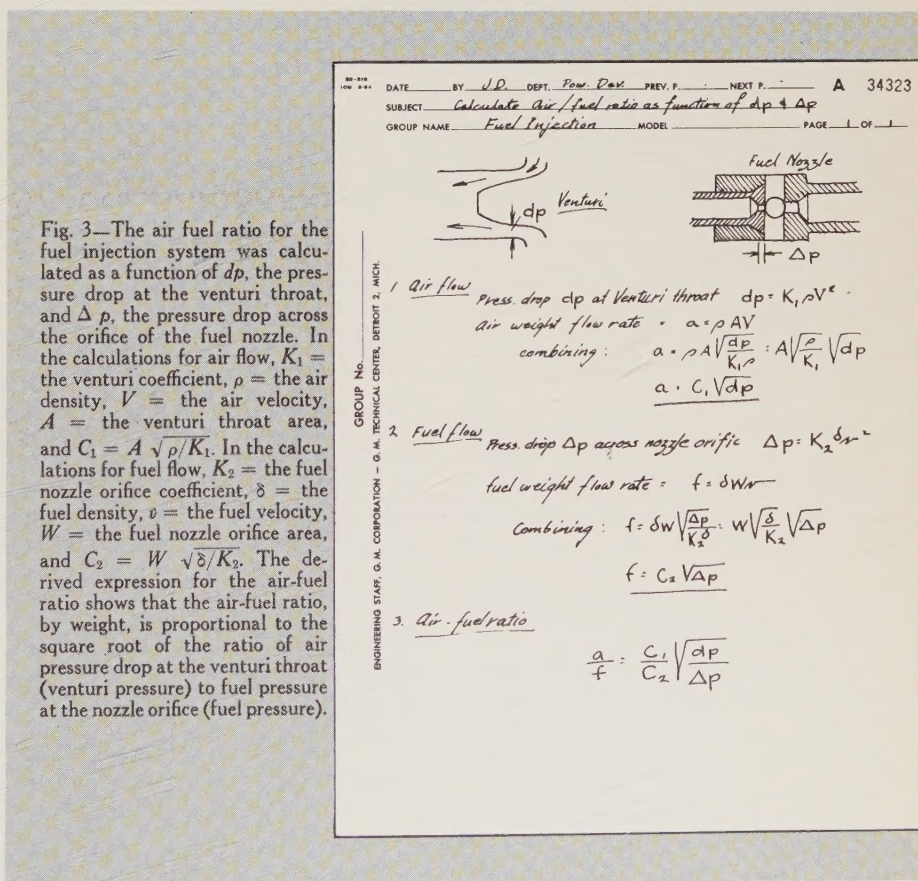 Fig. 3—The air fuel ratio for the
fuel injection system was calcu-
lated as a function of dp, the pres-
sure drop at the venturi throat,
and Δ p, the pressure drop across
the orifice of the fuel nozzle. In
the calculations for air flow, K₁ =
the venturi coefficient, ρ = the air
density, V = the air velocity,
A = the venturi throat area,
and C₁ = A √ρ/K₁. In the calcu-
lations for fuel flow, K₂ = the fuel
nozzle orifice coefficient, δ = the
fuel density, v = the fuel velocity,
W = the fuel nozzle orifice area,
and C₂ = W √δ/K₂. The de-
rived expression for the air-fuel
ratio shows that the air-fuel ratio,
by weight, is proportional to the
square root of the ratio of air
pressure drop at the venturi throat
(venturi pressure) to fuel pressure
at the nozzle orifice (fuel pressure).
DATE BY J.D. DEPT. Pow. Dev. PREV. P. NEXT P. A 34323
SUBJECT Calculate air/fuel ratio as function of dp & Δp
GROUP NAME Fuel Injection MODEL PAGE 1 OF 1
GROUP No.
ENGINEERING STAFF, G. M. CORPORATION – G. M. TECHNICAL CENTER, DETROIT 2, MICH.
Venturi
dp
Fuel Nozzle
Δp
1 Air flow
Press. drop dp at Venturi throat dp = K₁ρV²
Air weight flow rate = a = ρAV
combining: a = ρA√(dp/K₁ρ) = A√(ρ/K₁) √dp
a = C₁√dp
2 Fuel flow
Press. drop Δp across nozzle orific Δp = K₂δv²
fuel weight flow rate = f = δWv
Combining: f = δW√(Δp/K₂δ) = W√(δ/K₂) √Δp
f = C₂√Δp
3. Air-fuel ratio
a/f = C₁/C₂ √(dp/Δp)